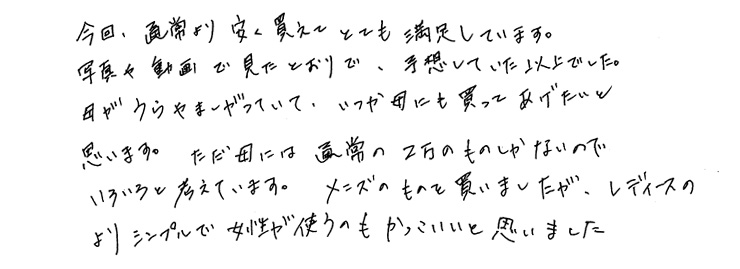 今回、通常より安く買えてとても満足しています。
写真や動画で見たとおりで、予想していた以上でした。
母がうらやましがっていて、いつか母にも買ってあげたいと
思います。ただ母には通常の2万のものしかないので
いろいろと考えています。メンズのものを買いましたが、レディースの
よりシンプルで女性が使うのもかっこいいと思いました